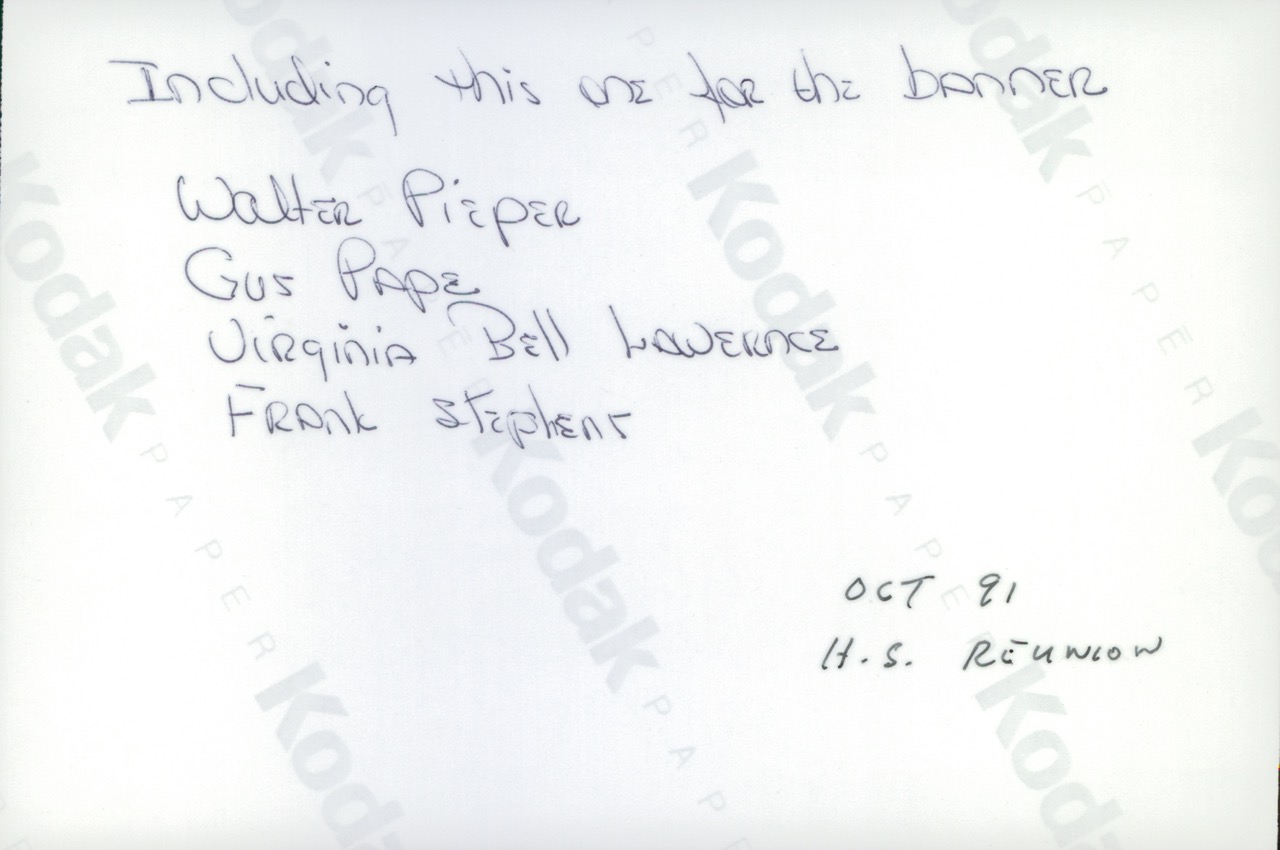 Including this one for the banner
Walter Pieper
Gus Pape
Virginia Bell Lawernce
Frank Stephens
OCT 91
H.S. REUNION
Kodak PAPER
Kodak PAPER
Kodak PAPER
Kodak PAPER
Kodak PAPER
Kodak
Kodak
Kodak